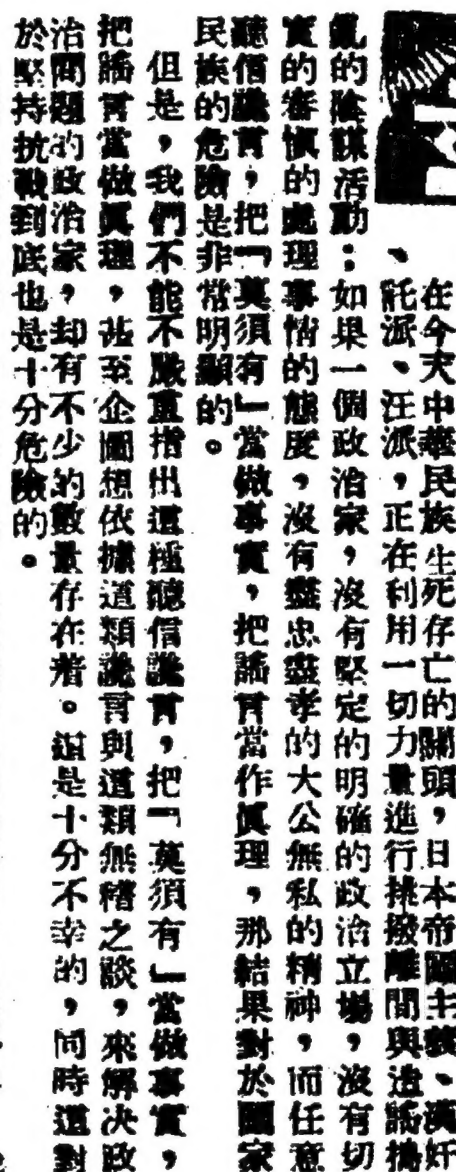 在今天中華民族生死存亡的關頭，日本帝國主義、漢奸
、託派、汪派，正在利用一切力量進行挑撥離間與造謠搗
亂的陰謀活動；如果一個政治家，沒有堅定的明確的政治立場，沒有切
實的審慎的處理事情的態度，沒有盡忠盡孝的大公無私的精神，而任意
聽信讒言，把「莫須有」當做事實，把謠言當作眞理，那結果對於國家
民族的危險是非常明顯的。
但是，我們不能不嚴重指出這種聽信讒言，把「莫須有」當做事實，
把謠言當做眞理，甚至企圖想依據這類讒言與這類無稽之談，來解决政
治問題的政治家，却有不少的數量存在着。這是十分不幸的，同時這對
於堅持抗戰到底也是十分危險的。